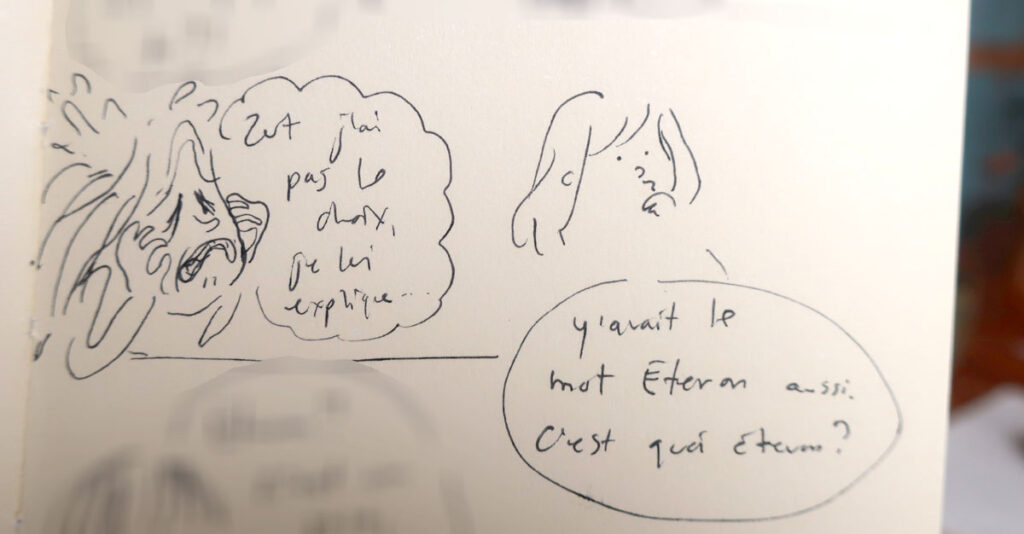 Zut j'ai
pas le
choix,
je lui
explique...
y'avait le
mot Éteron aussi.
C'est quoi éteron?